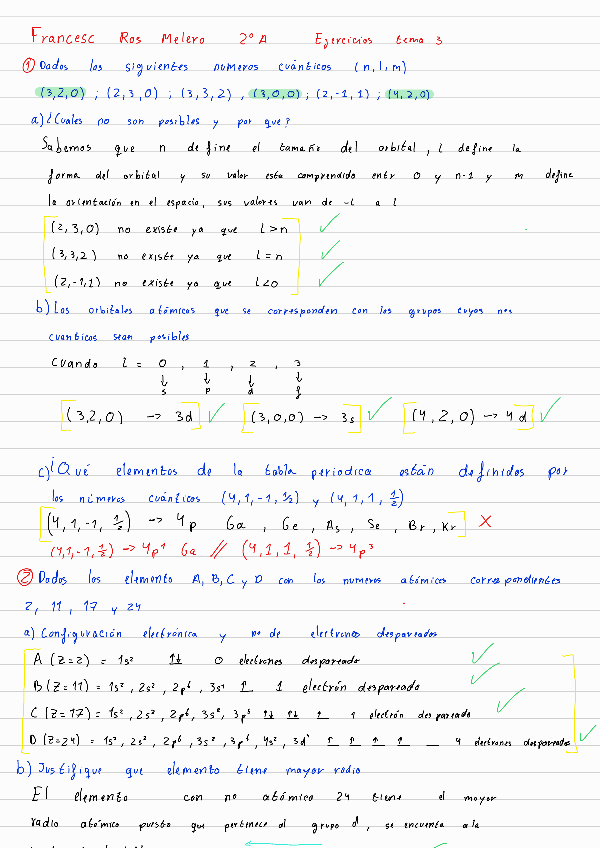 Francesc Ros Melero 2º A Ejercicios tema 3
① Dados los siguientes numeros cuánticos (n, l, m)
(3,2,0) ; (2,3,0) ; (3,3,2) , (3,0,0) ; (2,-1,1) ; (4,2,0)
a) ¿Cuales no son posibles y por que?
Sabemos que n define el tamaño del orbital, l define la
forma del orbital y su valor esta comprendido entr 0 y n-1 y m define
la orientación en el espacio, sus valores van de -l a l
(2,3,0) no existe ya que l>n ✓
(3,3,2) no existe ya que l=n ✓
(2,-1,1) no existe ya que l<0 ✓
b) Los orbitales atómicos que se corresponden con los grupos cuyos nos
cuanticos sean posibles
Cuando l = 0 , 1 , 2 , 3
↓ ↓ ↓ ↓
s p d f
(3,2,0) -> 3d ✓ (3,0,0) -> 3s ✓ (4,2,0) -> 4d ✓
c) ¡Qué elementos de la tabla periodica están definidos por
los números cuánticos (4,1,-1,½) y (4,1,1,½)
(4,1,-1,½) -> 4p Ga , Ge , As , Se , Br , Kr X
(4,1,-1,½) -> 4p¹ Ga // (4,1,1,½) -> 4p³
② Dados los elemento A, B, C y D con los numeros atómicos correspondientes
2, 11, 17 y 24
a) Configuración electrónica y no de electrones despareados
A (Z=2) = 1s² ↑↓ 0 electrones despareado ✓
B (Z=11) = 1s², 2s², 2p⁶, 3s¹ ↑ 1 electrón despareado ✓
C (Z=17) = 1s², 2s², 2p⁶, 3s², 3p⁵ ↑↓ ↑↓ ↑ 1 electrón despareado ✓
D (Z=24) = 1s², 2s², 2p⁶, 3s², 3p⁶, 4s², 3d⁴ ↑ ↑ ↑ ↑ _ 4 electrones despareados ✓
b) Justifique que elemento tiene mayor radio
El elemento con no atómico 24 tiene el mayor
radio atómico puesto que pertenece al grupo d, se encuenta a la